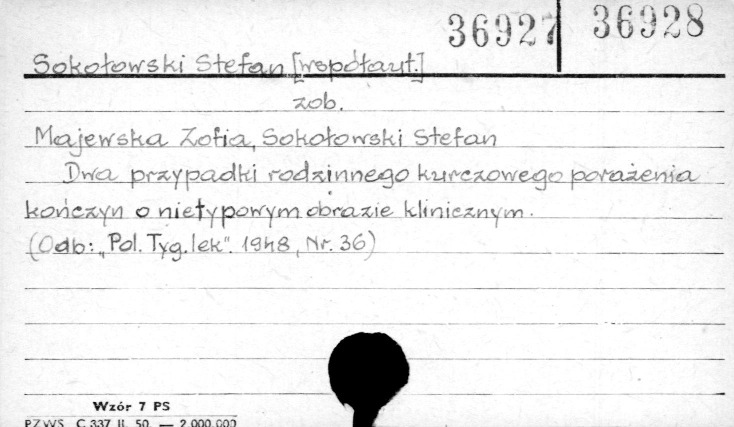 36927 36928
Sokołowski Stefan [współaut.]
zob.
Majewska Zofia, Sokołowski Stefan
Dwa przypadki rodzinnego kurczowego porażenia
kończyn o nietypowym obrazie klinicznym.
(Odb: „Pol. Tyg. lek". 1948, Nr. 36)
Wzór 7 PS
PZWS. C 337 II. 50. — 2.000.000